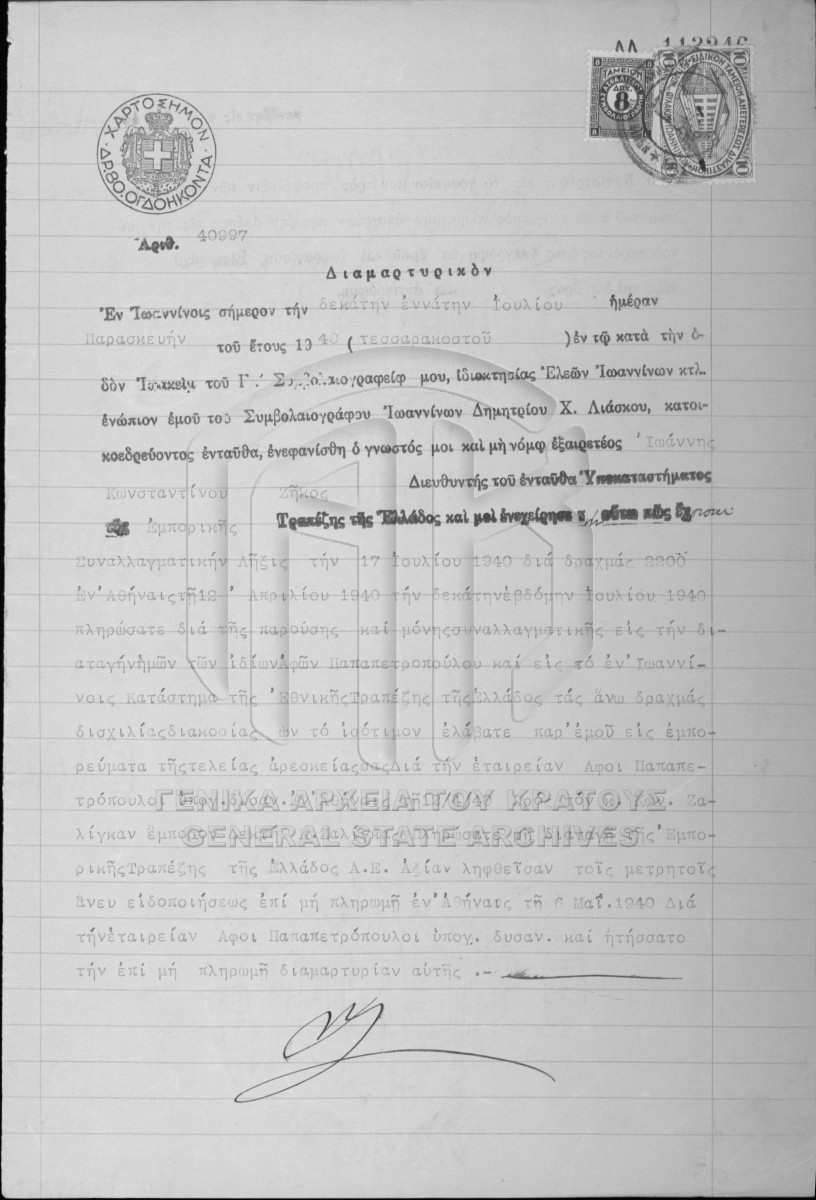 ΑΑ 113946
ΧΑΡΤΟΣΗΜΟΝ
ΔΡ. 80. ΟΓΔΟΗΚΟΝΤΑ
ΤΑΜΕΙΟΝ
ΔΡΧ.
8
10 10
Ἀριθ. 40997
Διαμαρτυρικὸν
Ἐν Ἰωαννίνοις σήμερον τὴν δεκάτην ἐννάτην Ἰουλίου ἡμέραν
Παρασκευήν τοῦ ἔτους 1940 (τεσσαρακοστοῦ )ἐν τῷ κατὰ τὴν ὁ-
δὸν Ἰωακεὶμ τοῦ Γ.' Συμβολαιογραφείῳ μου, ἰδιοκτησίας Ἐλεῶν Ἰωαννίνων κτλ.
ἐνώπιον ἐμοῦ τοῦ Συμβολαιογράφου Ἰωαννίνων Δημητρίου Χ. Λιάσκου, κατοι-
κοεδρεύοντος ἐνταῦθα, ἐνεφανίσθη ὁ γνωστός μοι καὶ μὴ νόμῳ ἐξαιρετέος Ἰωάννης
Κωνσταντίνου Ζῆκος Διευθυντής τοῦ ἐνταῦθα Ὑποκαταστήματος
τῆς Ἐμπορικῆς Τραπέζης τῆς Ἑλλάδος καὶ μοὶ ἐνεχείρησε τὴν οὕτω πῶς ἔχουσαν
Συναλλαγματικήν Λῆξις τήν 17 Ἰουλίου 1940 διά δραχμάς 2200
Ἐν Ἀθήναις τῇ 12 Ἀπριλίου 1940 τήν δεκάτηνἑβδόμην Ἰουλίου 1940
πληρώσατε διά τῆς παρούσης καί μόνηςσυναλλαγματικῆς εἰς τήν δι-
αταγήνἡμῶν τῶν ἰδίωνἈφῶν Παπαπετροπούλου καί εἰς τό ἐν'Ιωαννί-
νοις Κατάστημα τῆς 'ΕθνικῆςΤραπέζης τῆςἙλλάδος τάς ἄνω δραχμάς
δισχιλίαςδιακοσίας ὧν τό ἰσότιμον ἐλάβατε παρ'ἐμοῦ εἰς ἐμπο-
ρεύματα τῆςτελείας ἀρεσκείαςσαςΔιά τήν ἑταιρείαν Αφοι Παπαπε-
τρόπουλοι ὑπογ.δυσαν. Ζα-
λίγκαν ἔμπορον τῆς Ἐμπο-
ρικῆςΤραπέζης τῆς Ἑλλάδος Α.Ε. Ἀξίαν ληφθεῖσαν τοῖς μετρητοῖς
ἄνευ εἰδοποιήσεως ἐπί μή πληρωμῇ ἐν'Αθήναις τῇ 6 Μαΐ.1940 Διά
τήνἑταιρείαν Αφοι Παπαπετρόπουλοι ὑπογ. δυσαν. καί ᾐτήσατο
τήν ἐπί μή πληρωμῇ διαμαρτυρίαν αὐτῆς .-
ΓΕΝΙΚΑ ΑΡΧΕΙΑ ΤΟΥ ΚΡΑΤΟΥΣ
GENERAL STATE ARCHIVES